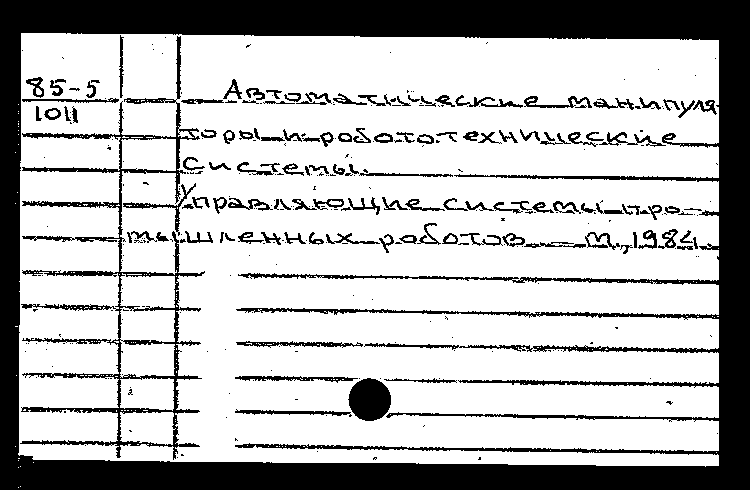 85-5
1011
Автоматические манипуля-
торы и робототехнические
системы.
Управляющие системы про-
мышленных роботов. — М., 1984.